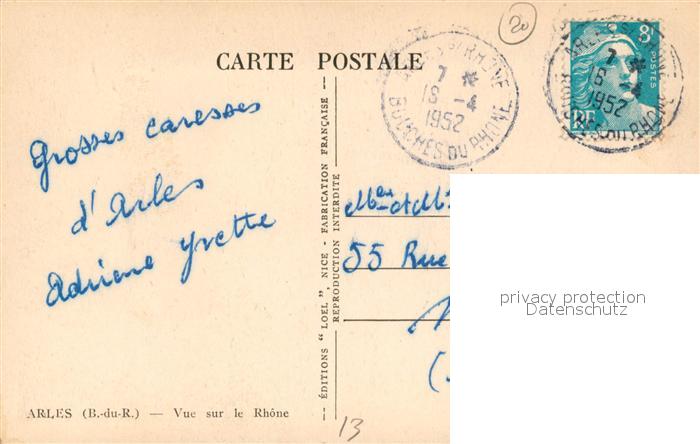 20
CARTE POSTALE
ARLES S/RHONE
7
16 -4
1952
BOUCHES DU RHONE
8F
POSTES
RF
ARLES S/RHONE
7
16 -4
1952
BOUCHES DU RHONE
Grosses caresses
d'Arles
Adriene Yvette
ÉDITIONS "LOEL", NICE - FABRICATION FRANÇAISE
REPRODUCTION INTERDITE
55 Rue
privacy protection
Datenschutz
ARLES (B.-du-R.) — Vue sur le Rhône
13